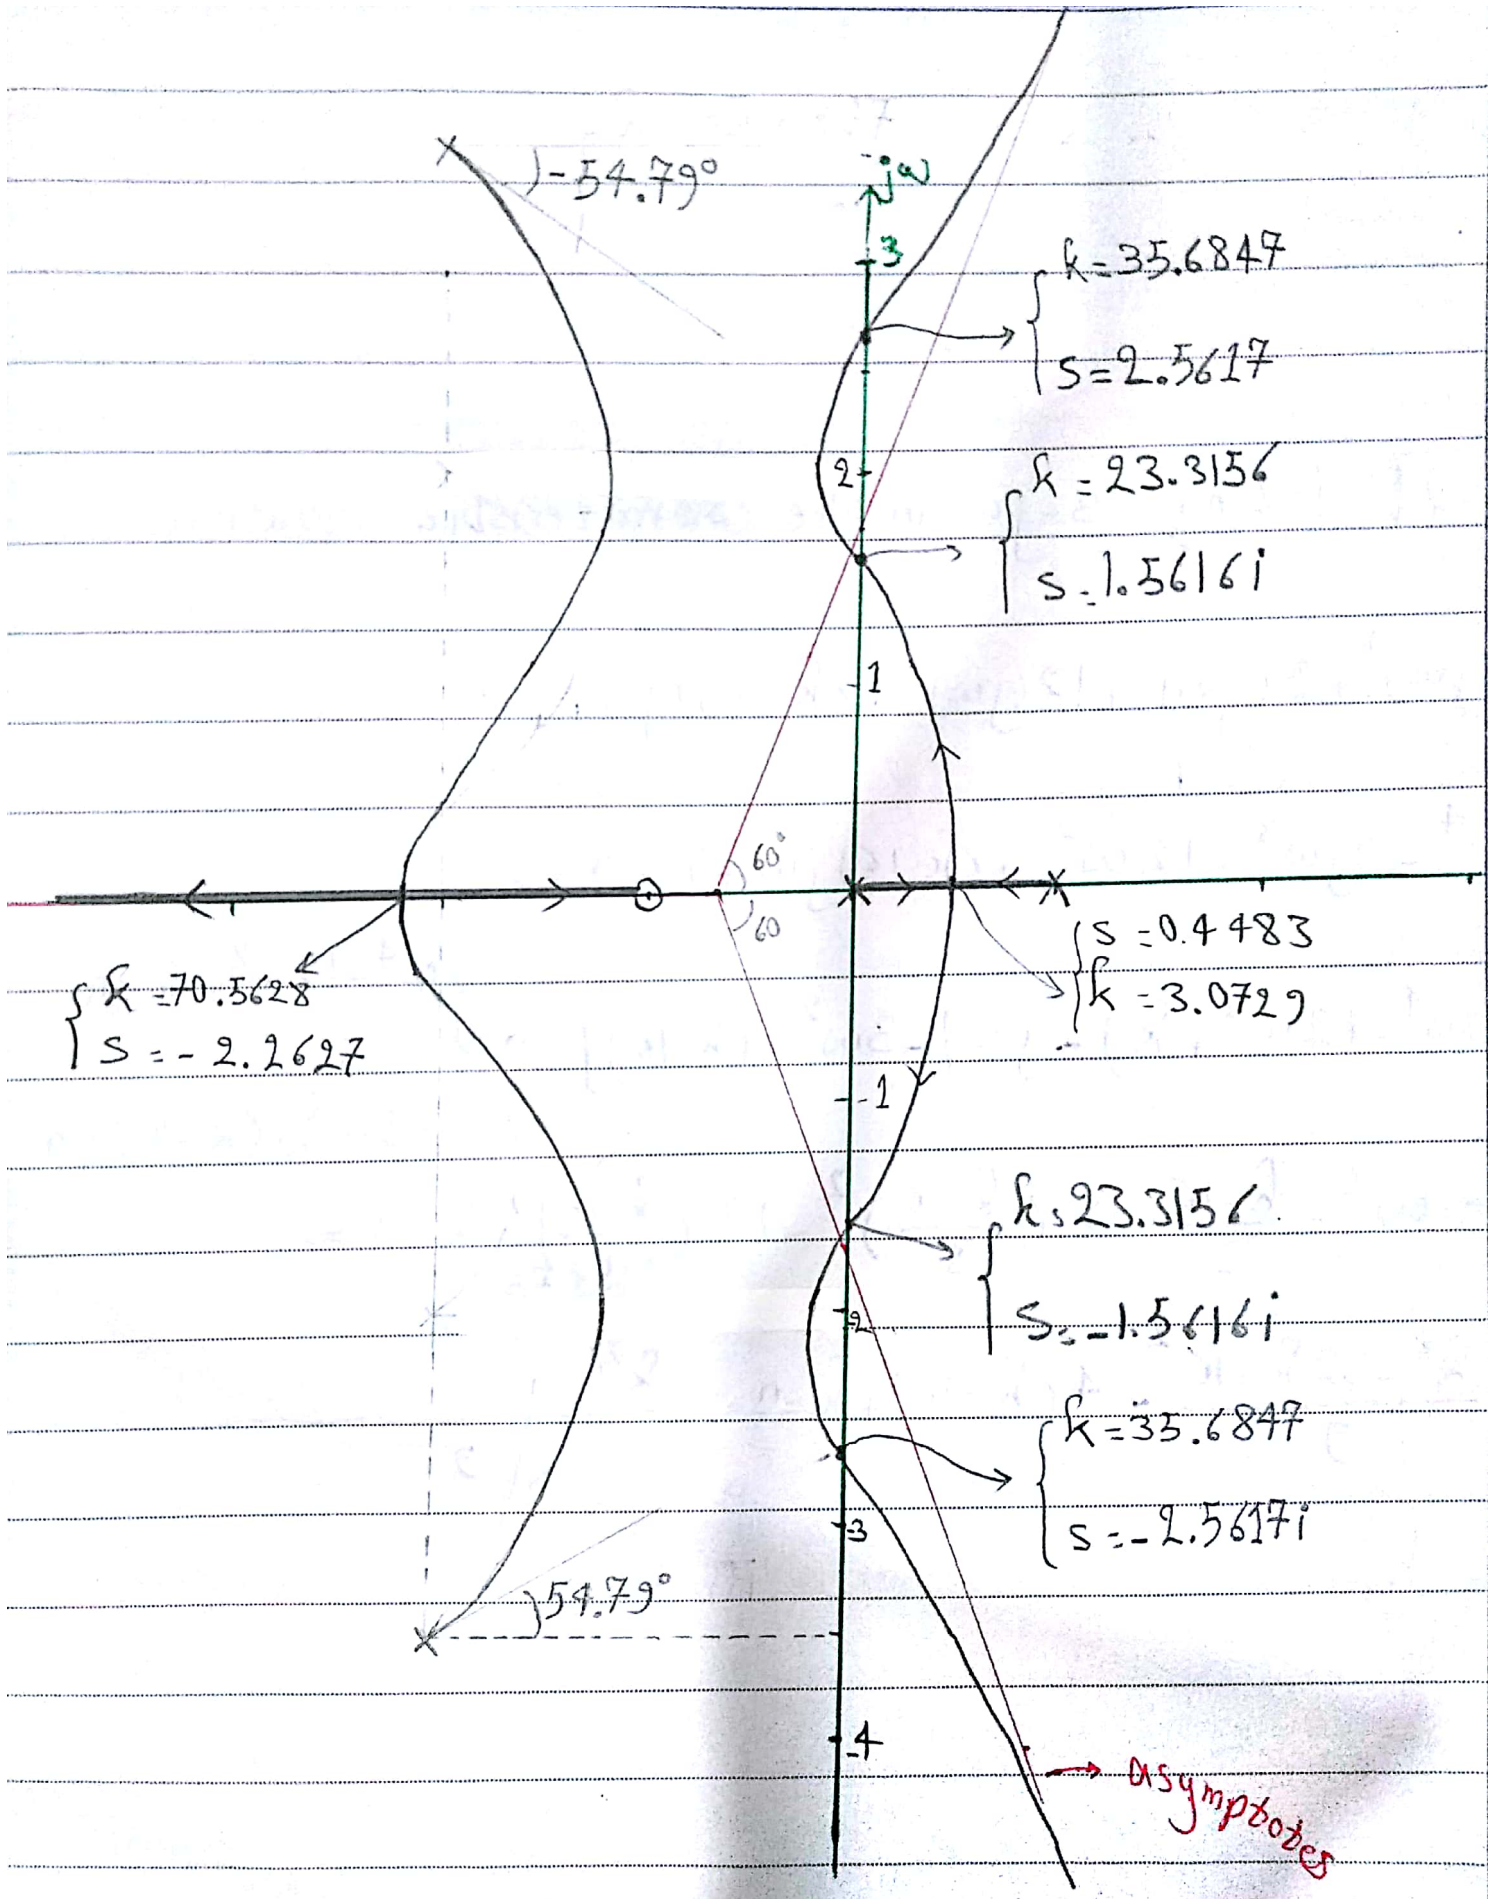 -54.79°
jω
3
k=35.6847
s=2.5617
2
k=23.3156
s=1.5616i
1
60°
60
s=0.4483
k=3.0729
k=70.5628
s=-2.2627
-1
k=23.3156
s=-1.5616i
-2
k=35.6847
s=-2.5617i
-3
54.79°
-4
asymptotes